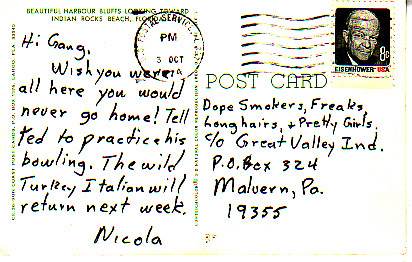 BEAUTIFUL HARBOUR BLUFFS LOOKING TOWARD
INDIAN ROCKS BEACH, FLORIDA
Hi Gang,
Wish you were
all here you would
never go home! Tell
Ted to practice his
bowling. The wild
Turkey Italian will
return next week.
Nicola
PM
3 OCT
POST CARD
EISENHOWER USA
8c
Dope Smokers, Freaks,
Longhairs, & Pretty Girls,
c/o Great Valley Ind.
P.O. Box 324
Malvern, Pa.
19355